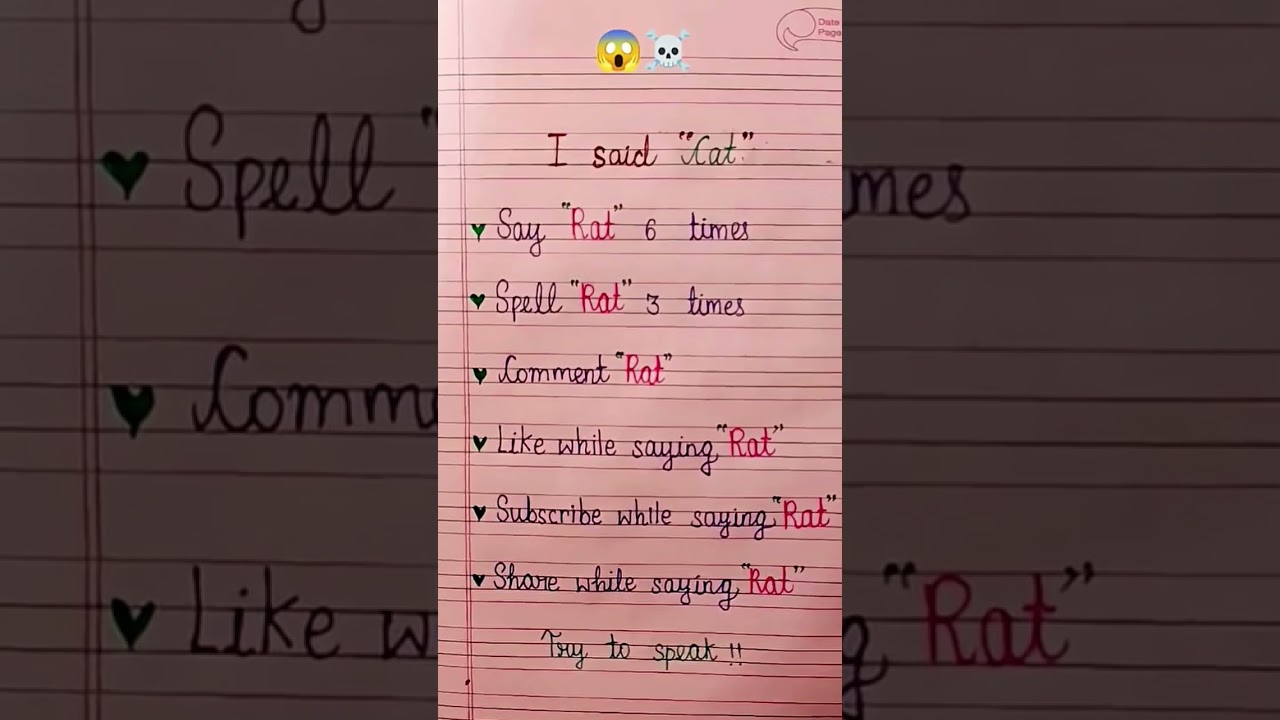 😱☠️
Date
Page
I said "Cat"
♥ Say "Rat" 6 times
♥ Spell "Rat" 3 times
♥ Comment "Rat"
♥ Like while saying "Rat"
♥ Subscribe while saying "Rat"
♥ Share while saying "Rat"
Try to speak !!